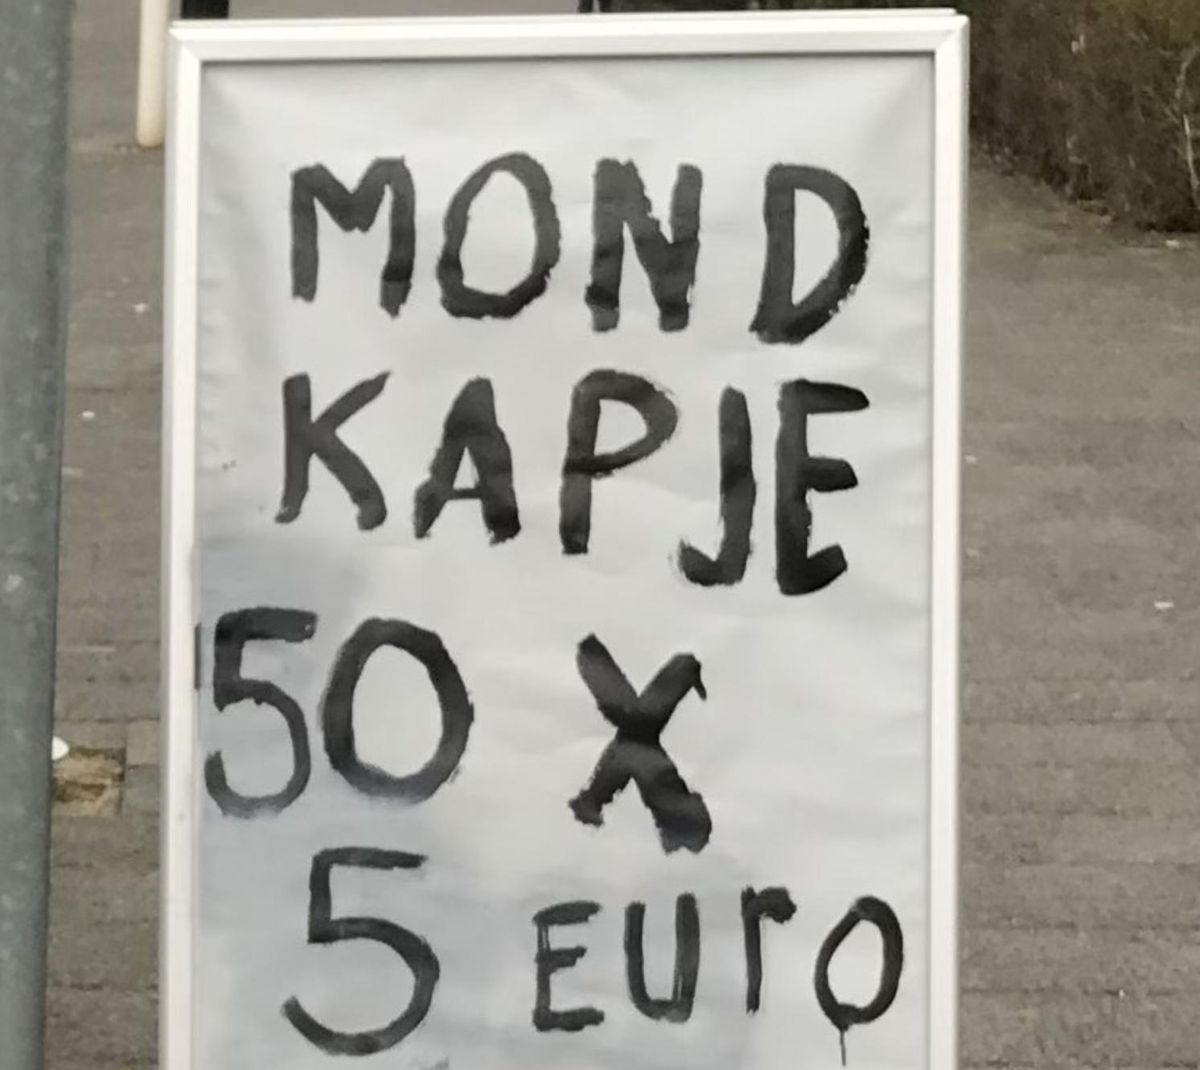 MOND
KAPJE
50 X
5 Euro